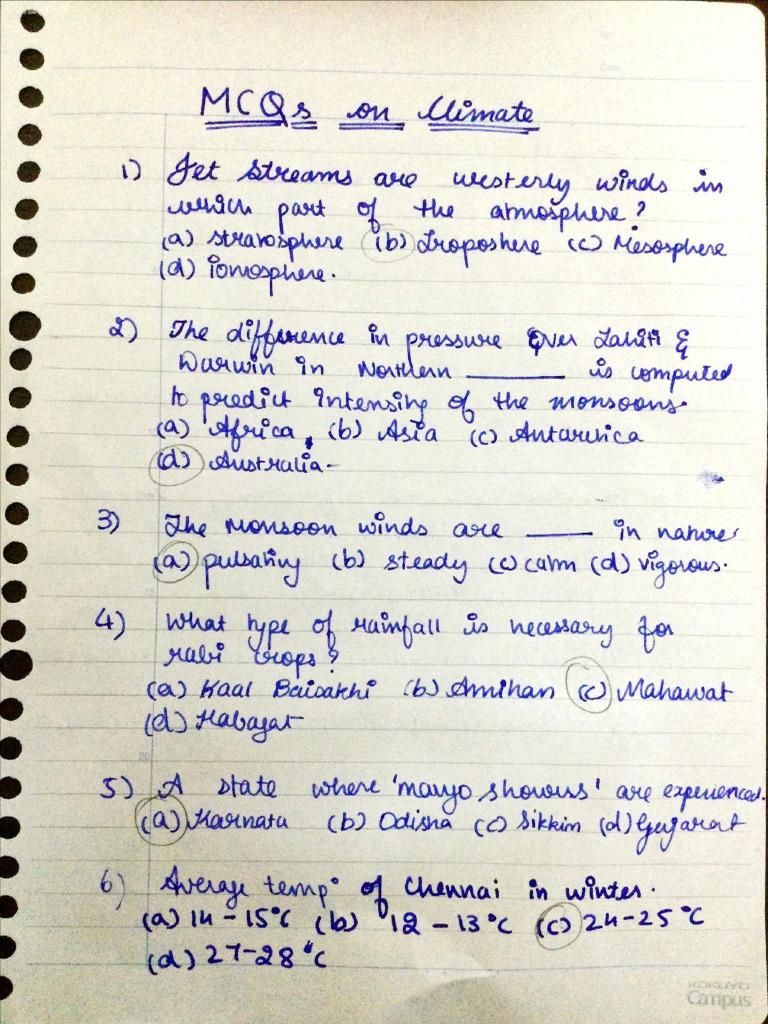 MCQs on Climate
1) Jet streams are westerly winds in
which part of the atmosphere?
(a) stratosphere (b) Troposhere (c) Mesosphere
(d) ionosphere.
2) The difference in pressure over Tahiti &
Darwin in Northern ______ is computed
to predict intensity of the monsoons.
(a) Africa, (b) Asia (c) Antarctica
(d) Australia-
3) The monsoon winds are ____ in nature
(a) pulsating (b) steady (c) calm (d) vigorous.
4) What type of rainfall is necessary for
rabi crops?
(a) Kaal Baisakhi (b) Amihan (c) Mahawat
(d) Habagat
5) A state where 'mango showers' are experienced.
(a) Karnata (b) Odisha (c) Sikkim (d) Gujarat
6) Average temp° of Chennai in winter.
(a) 14-15°C (b) 12-13°C (c) 24-25°C
(d) 27-28°C
KOKUYO
Campus